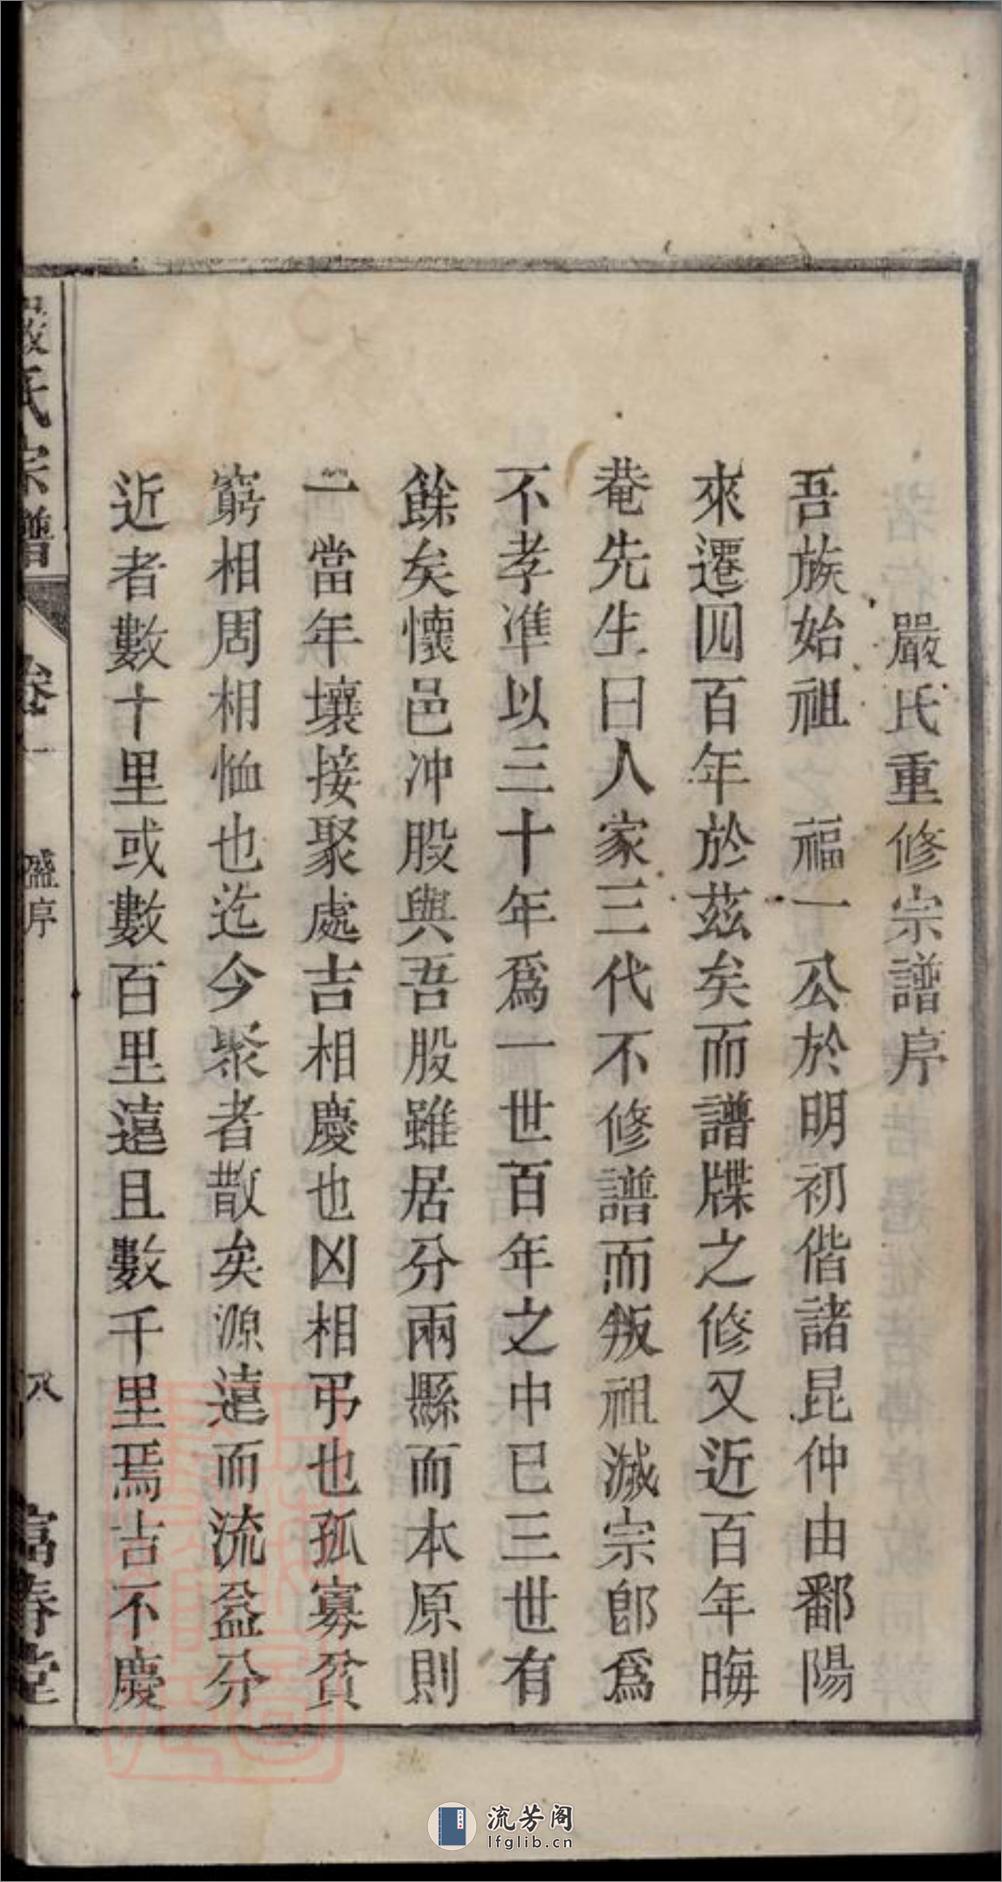 嚴氏重修宗譜序
吾族始祖　福一公於明初偕諸昆仲由鄱陽
來遷四百年於茲矣而譜牒之修又近百年晦
菴先生曰人家三代不修譜而叛祖滅宗卽爲
不孝準以三十年爲一世百年之中已三世有
餘矣懷邑冲股與吾股雖居分兩縣而本原則
一當年壤接聚處吉相慶也凶相弔也孤寡貧
窮相周相恤也迄今聚者散矣源遠而流益分
近者數十里或數百里遠且數千里焉吉不慶
嚴氏宗譜　卷一　盛序　八　富春堂
流芳阁
lfglib.cn